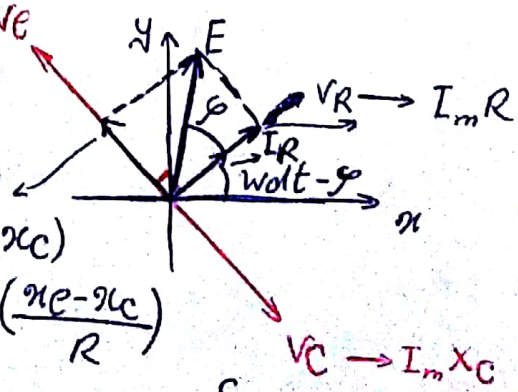 Ve
y
E
φ
VR → ImR
IR
wdt-φ
x
xc)
(xe-xc
R)
VC → ImXC